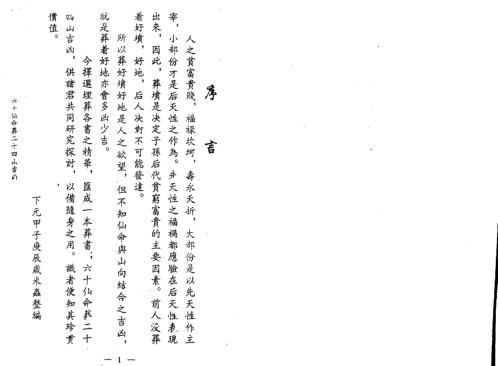 序言
人之貧富貴賤，福禄坎坷，壽永夭折，大部份是以先天性作主
宰，小部份才是后天性之作為。先天性之福禍都應驗在后天性表現
出來，因此，葬墳是决定子孫后代貧窮富貴的主要因素。前人没葬
着好墳，好地，后人决對不可能發達。
所以葬好墳好地是人之欲望，但不知仙命與山向結合之吉凶，
就是葬着好地亦會多凶少吉。
今擇選埋葬各書之精華，匯成一本葬書；六十仙命葬二十
四山吉凶，供諸君共同研究探討，以備隨身之用。識者便知其珍貴
價值。
下元甲子庚辰歲米蟲整編
六十仙命葬二十四山吉凶
— 1 —